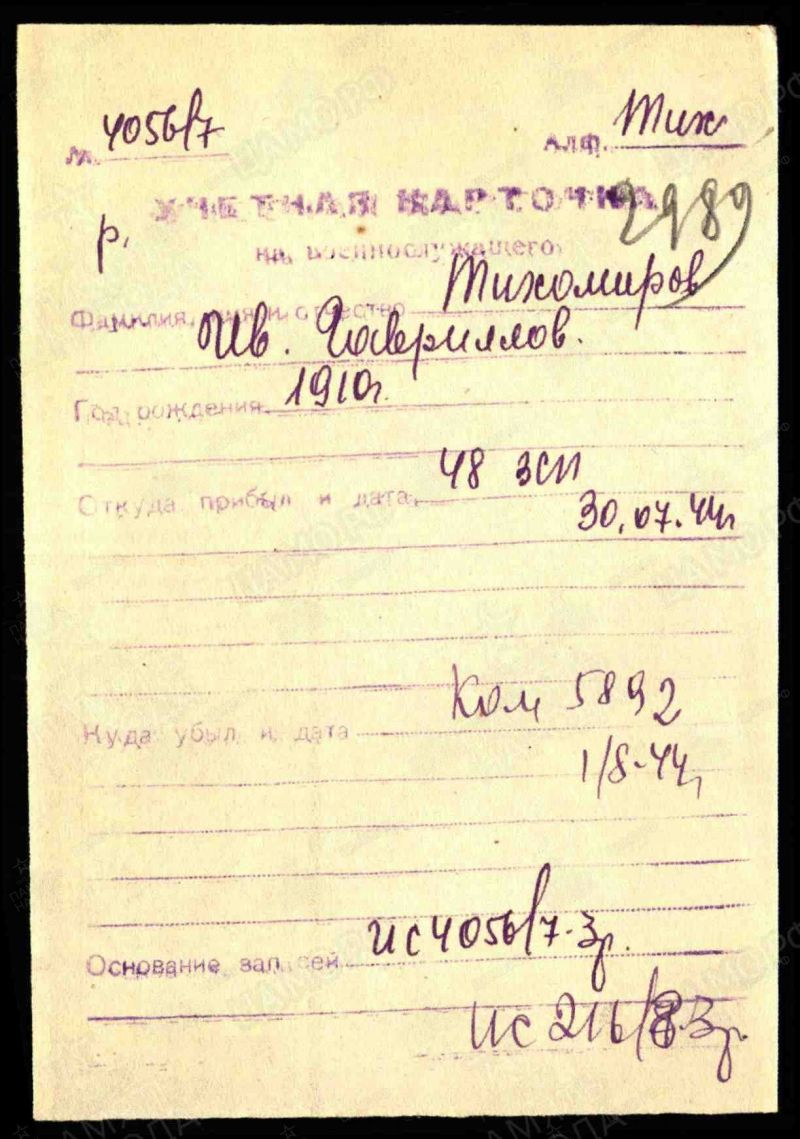 № 4056/7 Алф. Тих
УЧЕТНАЯ КАРТОЧКА
2989
р. на военнослужащего
Фамилия, имя и отчество Тихомиров
Ив. Гавриллов.
Год рождения 1910г.
Откуда прибыл и дата 48 зсп
30.07.44г
Куда убыл и дата Ком 5892
1/8-44г
Основание записей ис 4056/7-3р.
ис 216/8-3р.